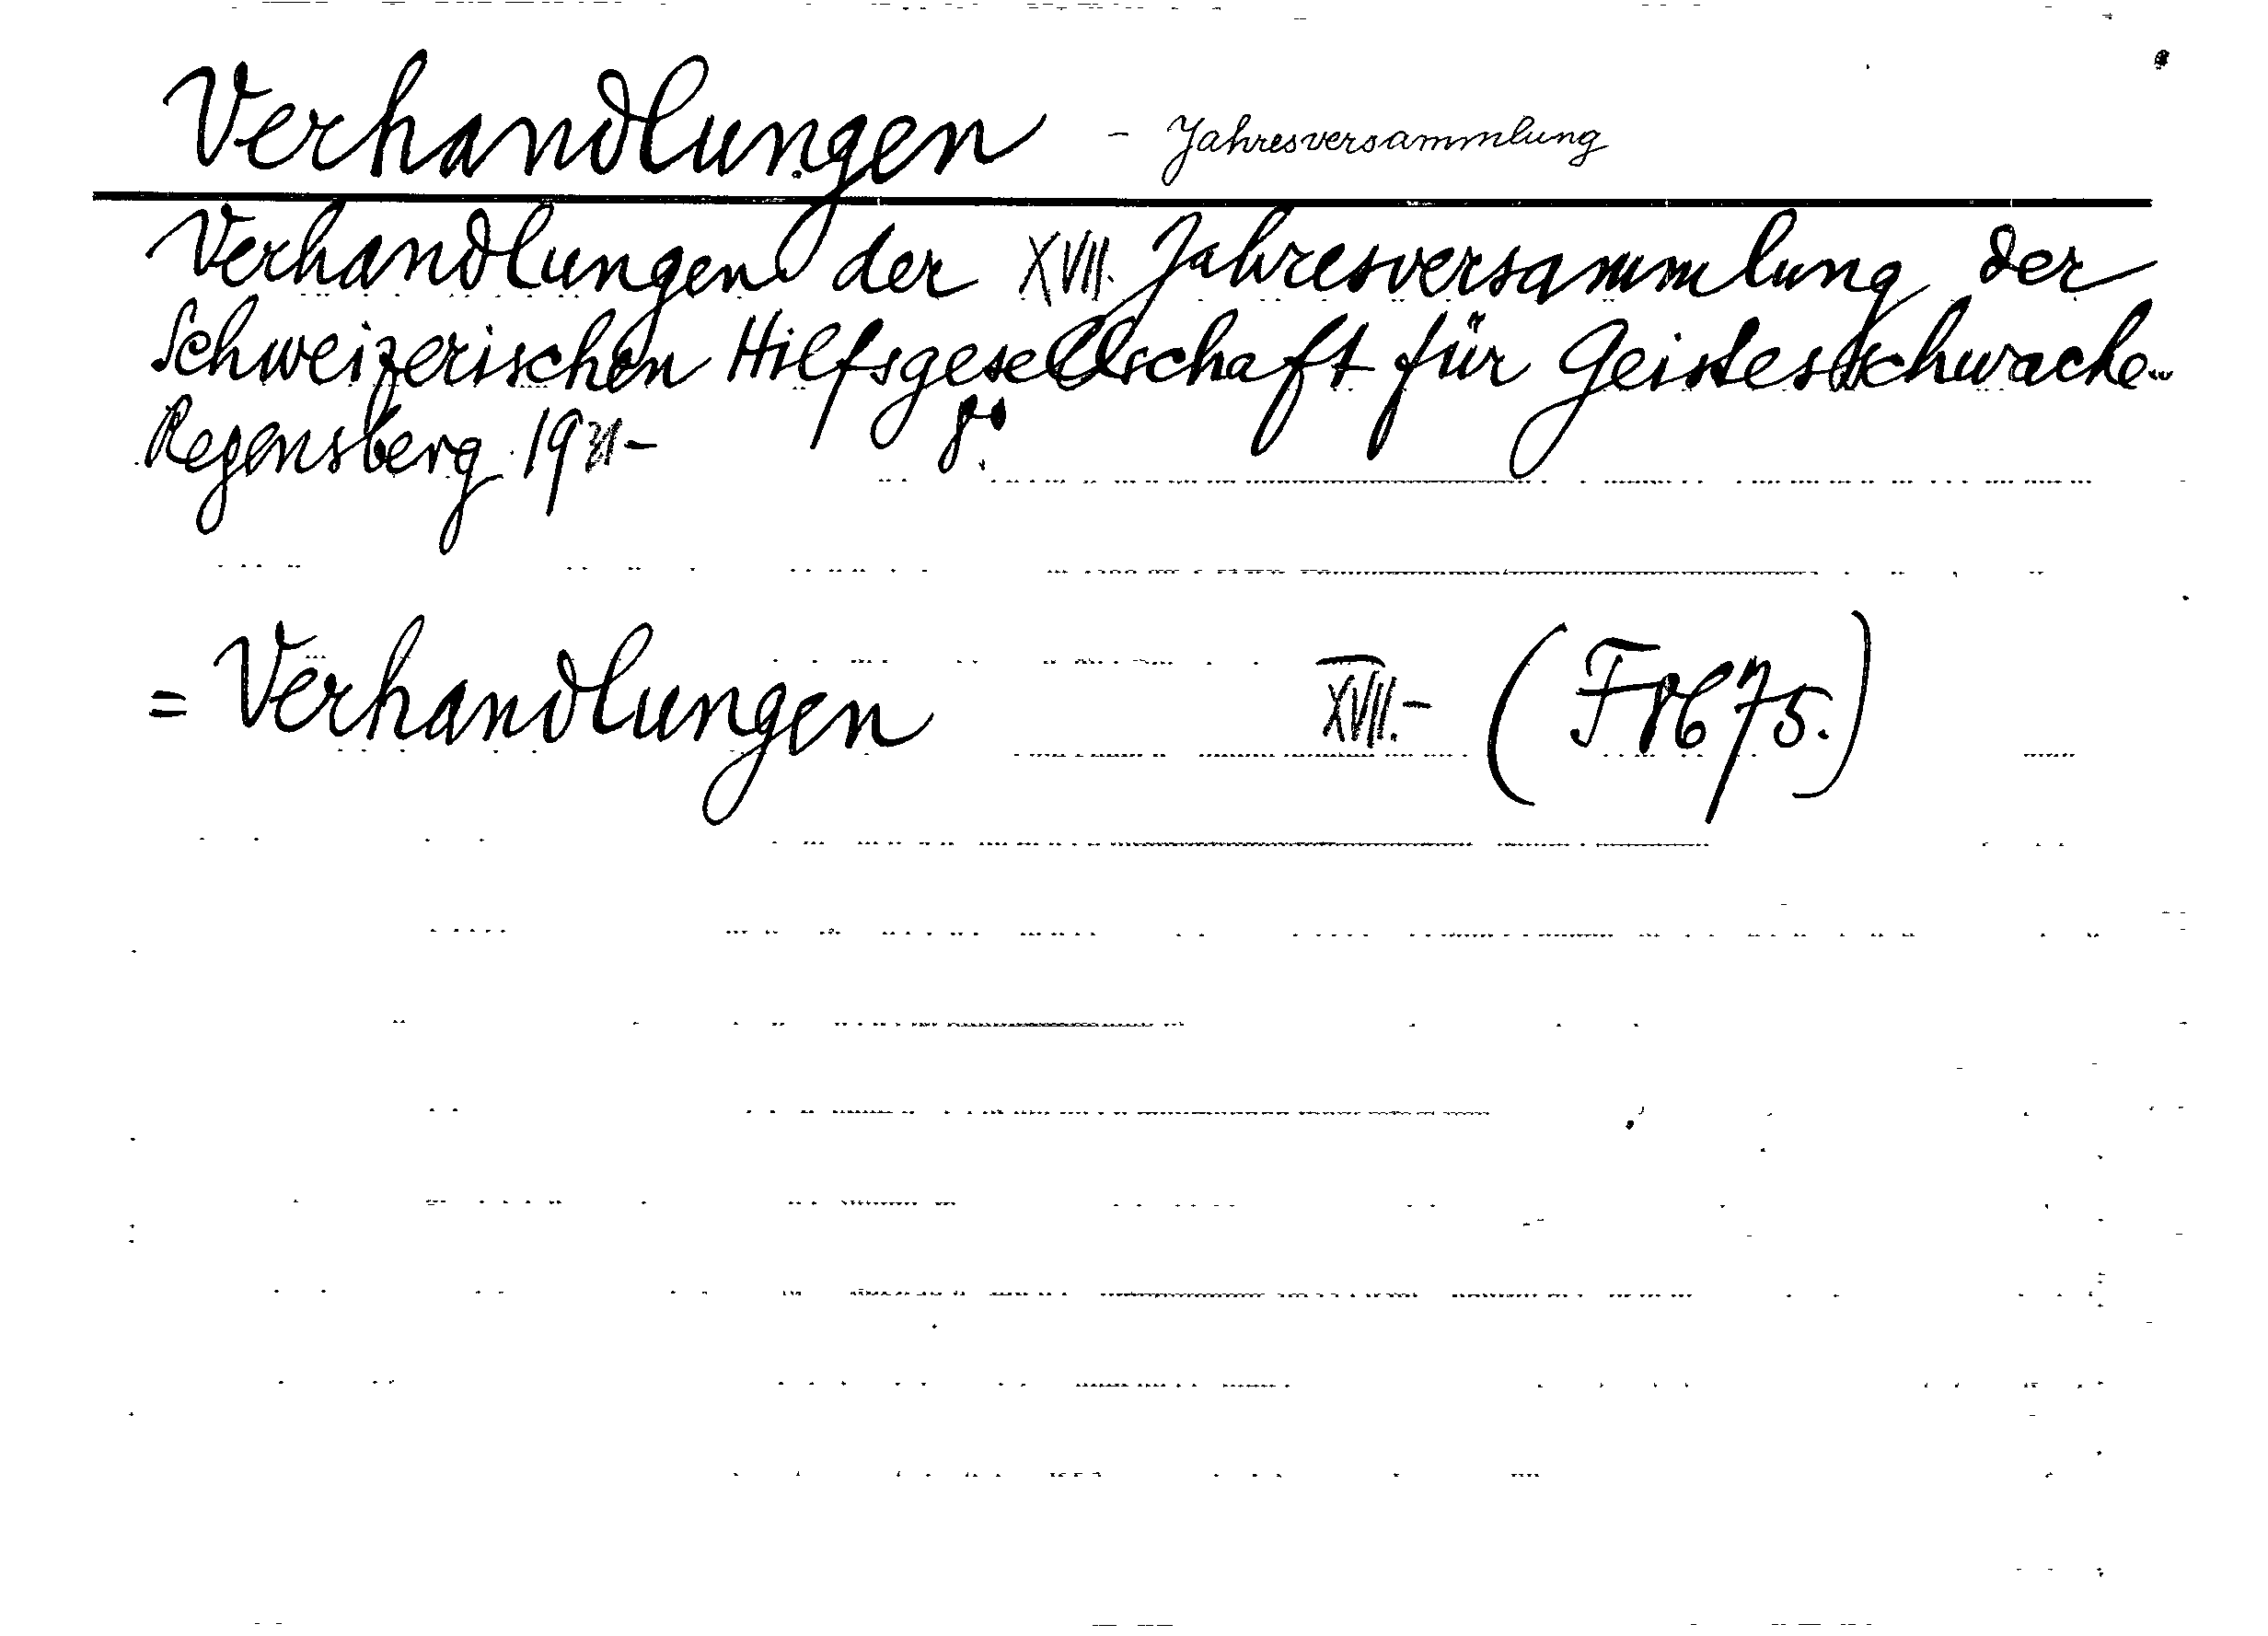 Verhandlungen - Jahresversammlung
Verhandlungen der XVII. Jahresversammlung der
Schweizerischen Hilfsgesellschaft für Geistesschwache.
Regensberg 1931- 8°.
= Verhandlungen XVII.- (F 8675.)